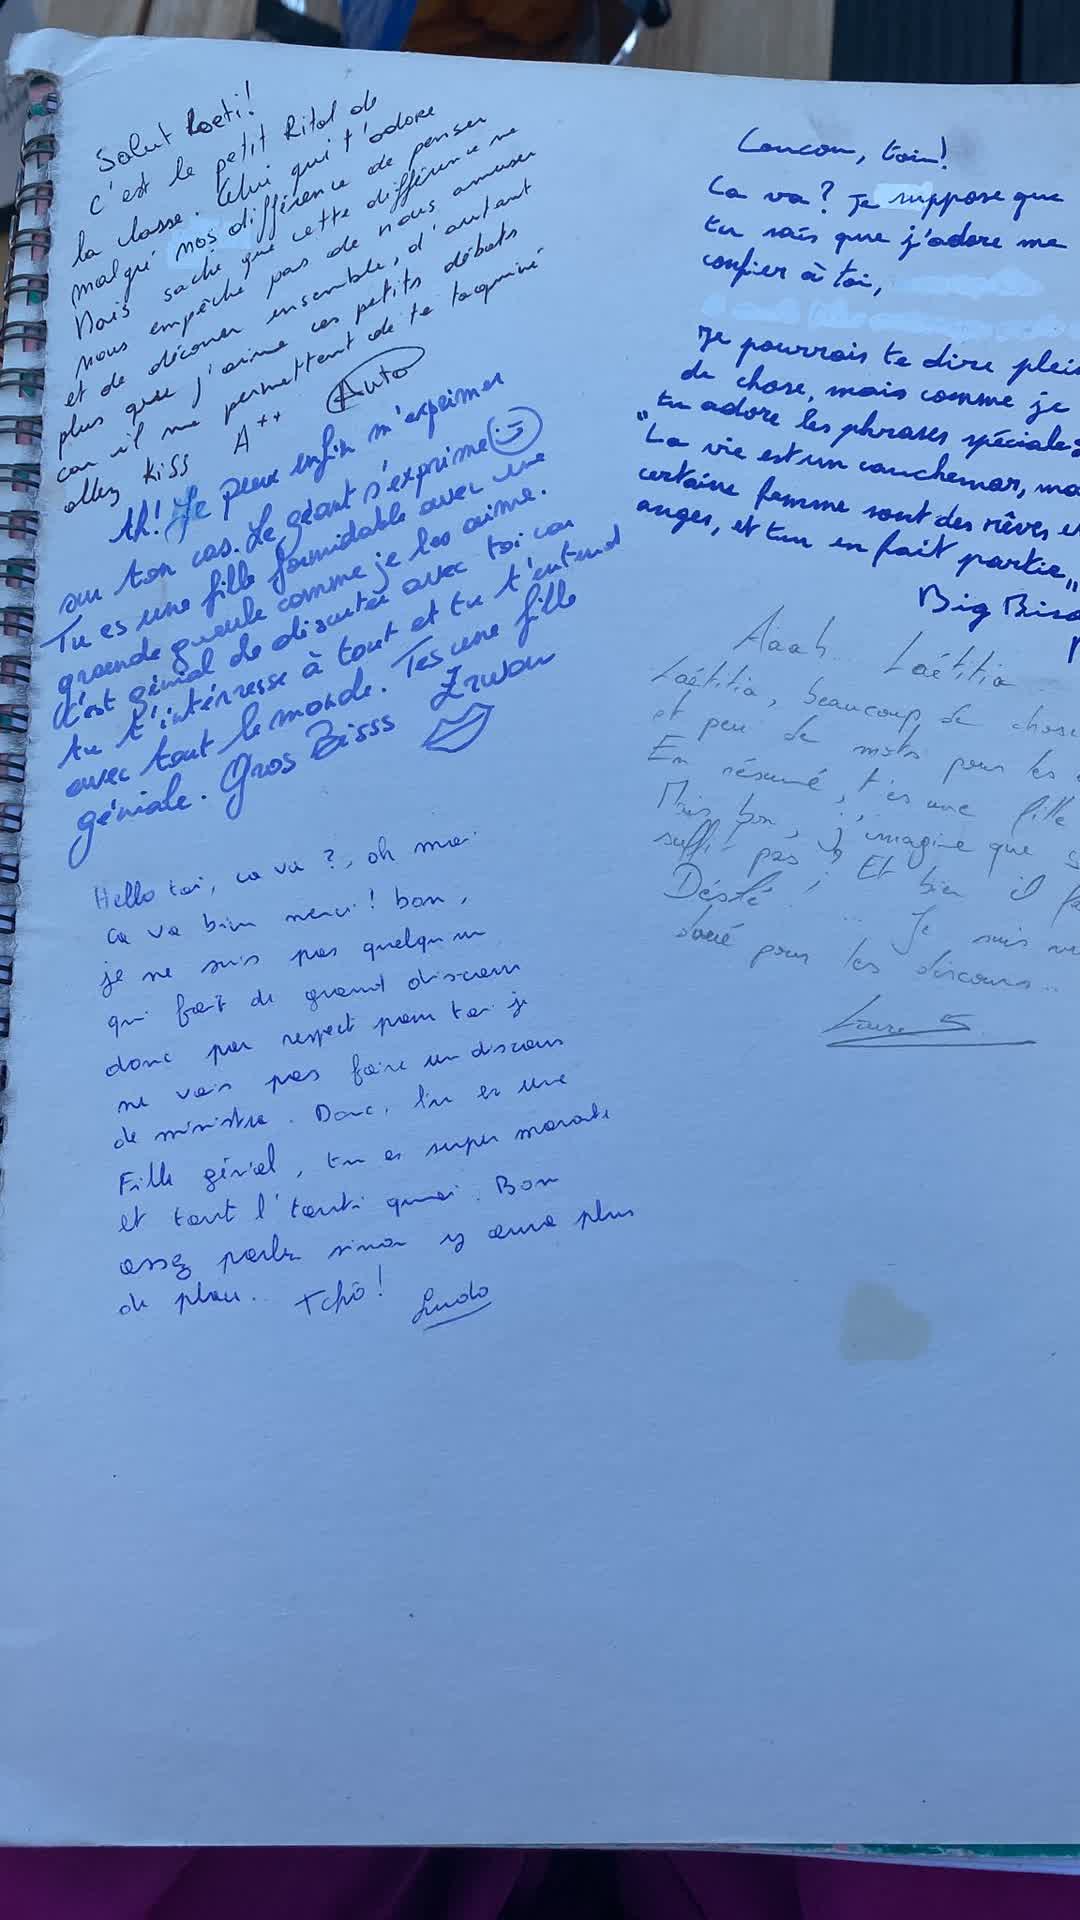 Salut Laeti!
c'est le petit Rital de
la classe. Celui qui t'adore
malgré nos différence de penser
Mais sache que cette différence ne
nous empêche pas de nous amuser
et de déconner ensemble, d'autant
plus que j'aime ces petits débats
car il me permettent de te taquiné
allez kiss A++ Auto
Ah! Je peux enfin m'exprimer
sur ton cas. Le géant s'exprime
Tu es une fille formidable avec une
grande gueule comme je les aime.
C'est génial de discuter avec toi car
tu t'intéresse à tout et tu t'entend
avec tout le monde. T'es une fille
géniale. Gros Bisss Erwan
Hello toi, ca va ?, oh moi
ca va bien merci! bon,
je ne suis pas quelqu'un
qui fait de grand discours
donc par respect pour toi je
ne vais pas faire un discours
de ministre. Donc, tu es une
Fille génial, tu es super marante
et tout l'touti quoi. Bon
assez parler sinon y aura plus
de place. Tchô! Ludo
Coucou, toi!
Ca va? Je suppose que
tu sais que j'adore me
confier à toi,
Je pourrais te dire plein
de chose, mais comme je
tu adore les phrases spéciales
"La vie est un cauchemar, mais
certaine femme sont des rêves et
anges, et tu en fait partie"
Big Biso
Aaah.. Laétitia
Laétitia, beaucoup de chose
et peu de mots pour les
En résumé, t'es une fille
Mais bon, j'imagine que
suffit pas? Et bien il
Désolé! ... Je suis
doué pour les discours..